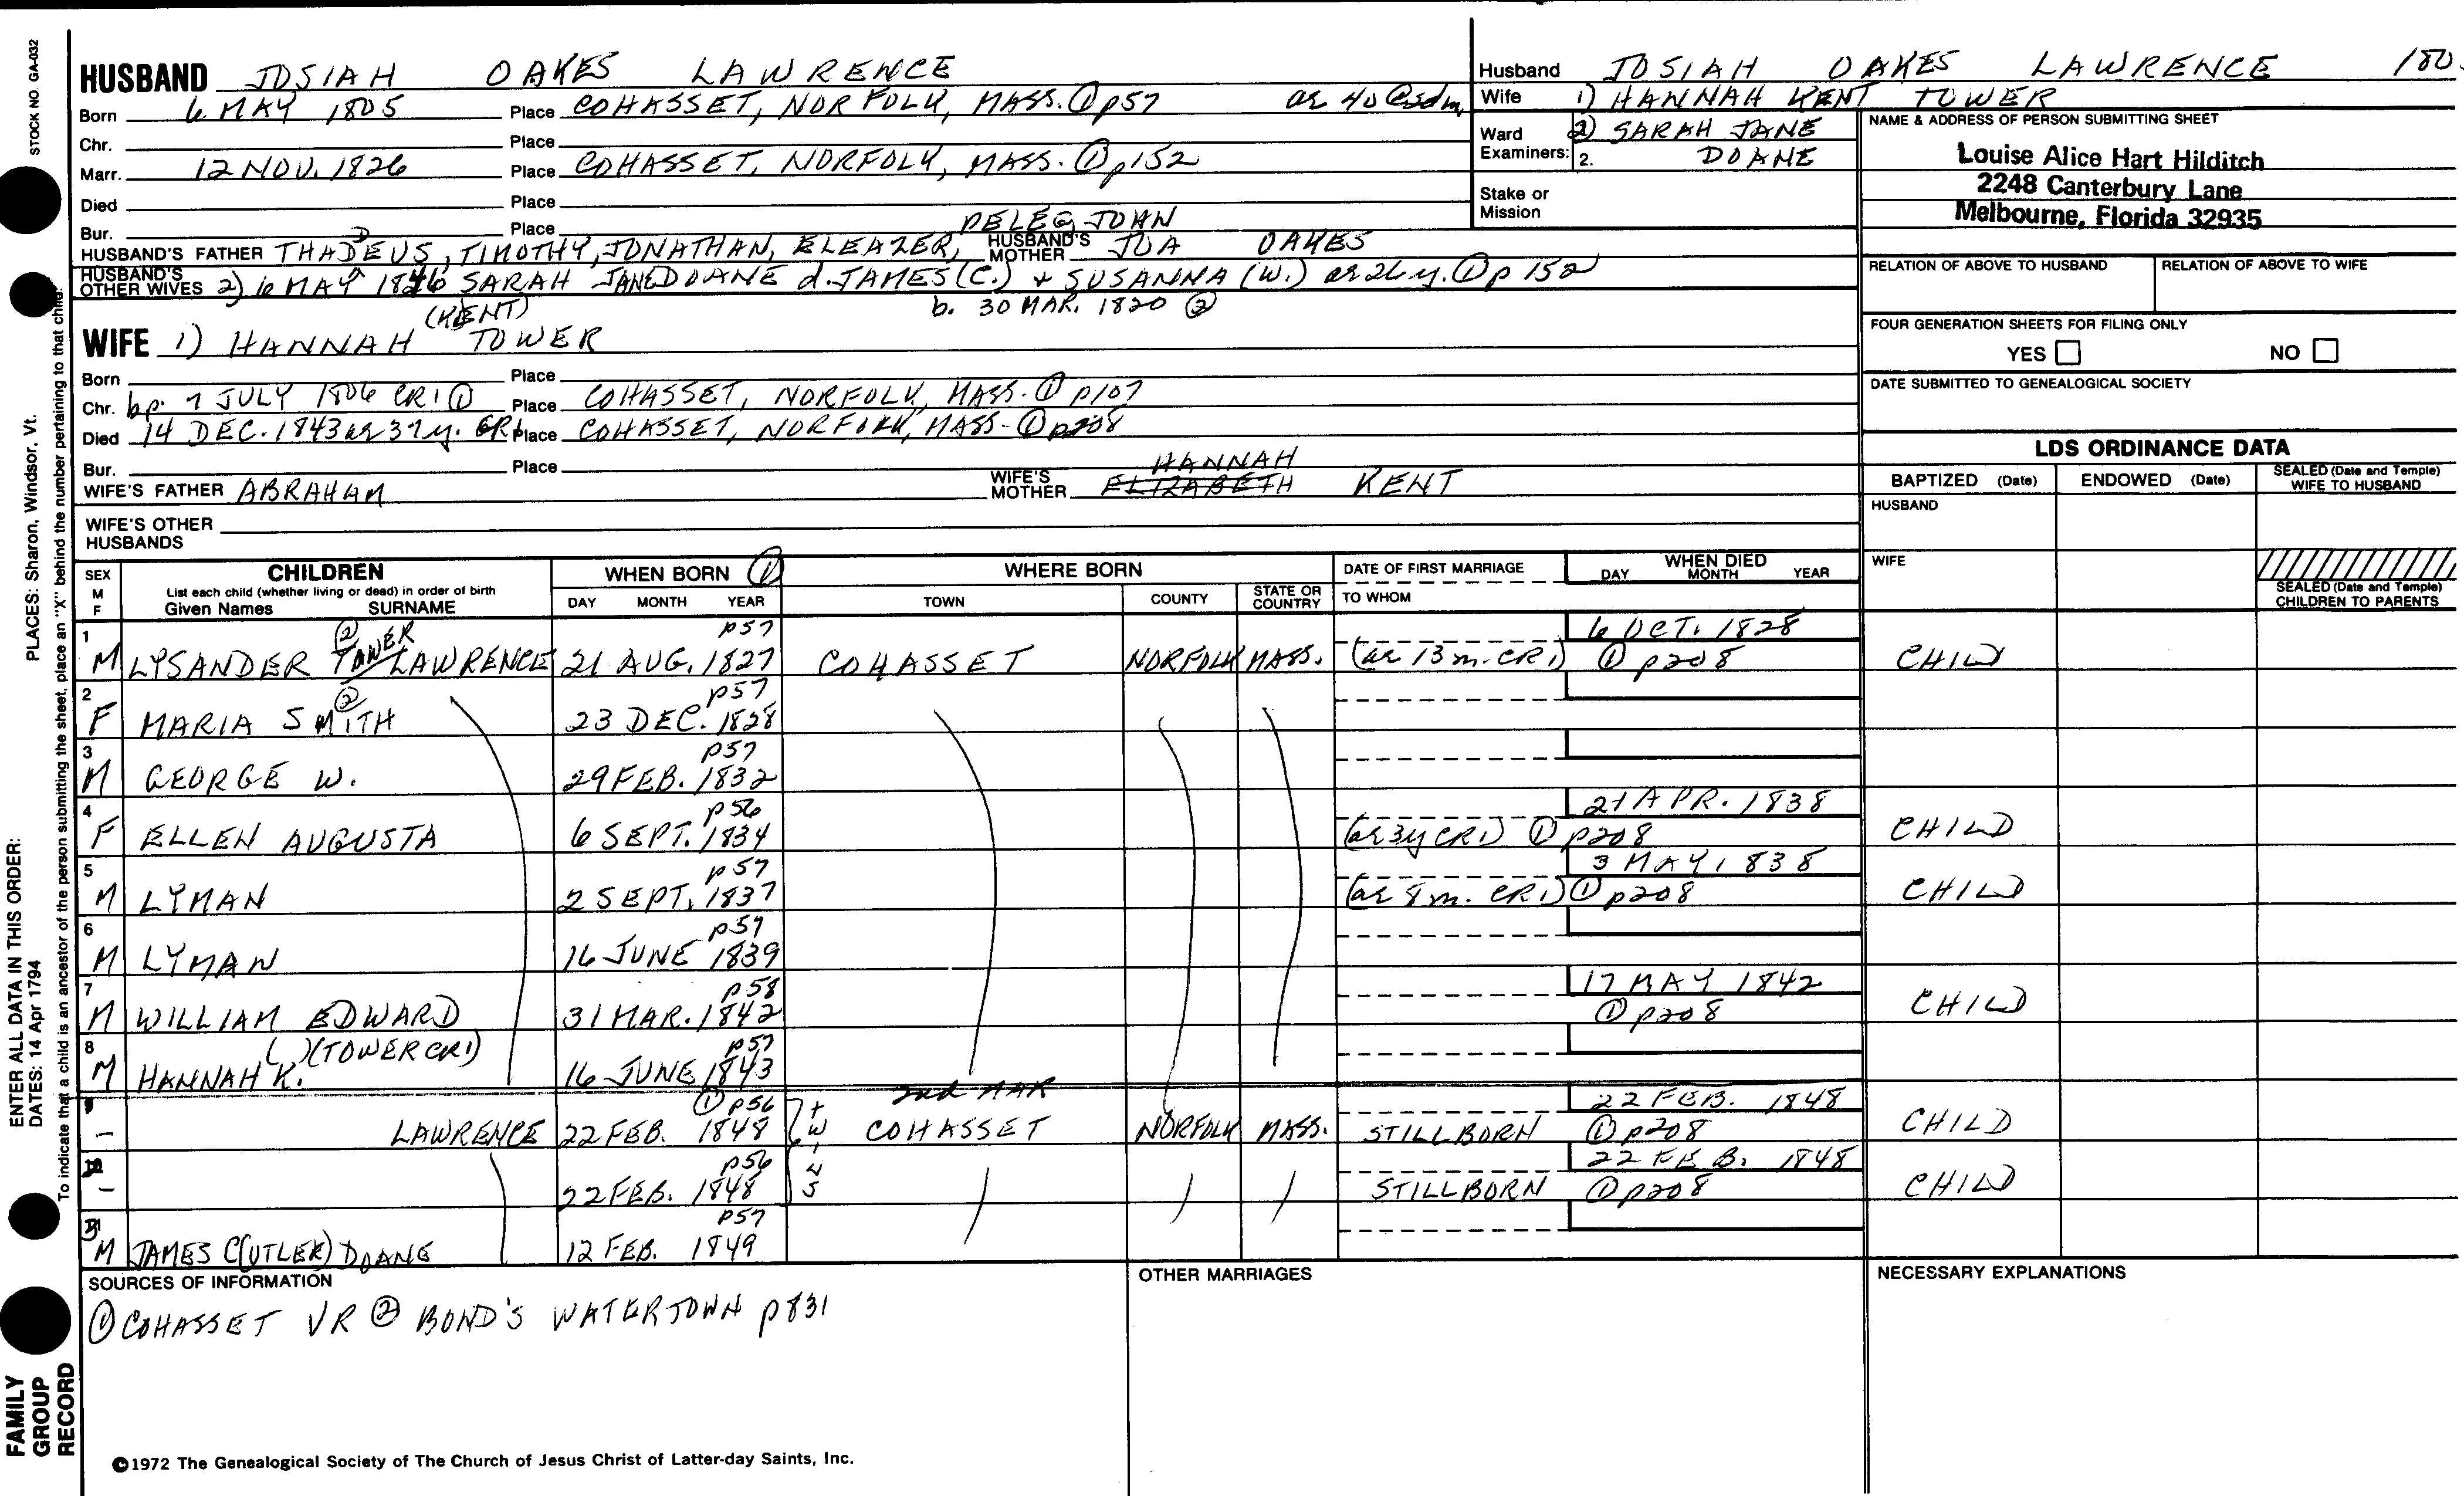 STOCK NO. GA-032
HUSBAND JOSIAH OAKES LAWRENCE
Born 6 MAY 1805 Place COHASSET, NORFOLK, MASS. ① p57
Chr. Place
Marr. 12 NOV. 1826 Place COHASSET, NORFOLK, MASS. ① p152
Died Place
Bur. Place
PELEG, JOHN
HUSBAND'S FATHER THADDEUS, TIMOTHY, JONATHAN, ELEAZER, HUSBAND'S MOTHER JOA OAKES
HUSBAND'S OTHER WIVES 2) 6 MAY 1846 SARAH JANE DOANE d. JAMES (C.) & SUSANNA (W.) ae 26 y. ① p 152
b. 30 MAR. 1820 ②
(KENT)
WIFE 1) HANNAH TOWER
Born Place
Chr. bp. 7 JULY 1806 CR1 ① Place COHASSET, NORFOLK, MASS. ① p107
Died 14 DEC. 1843 ae 37 y. CR1 Place COHASSET, NORFOLK, MASS. ① p208
Bur. Place
HANNAH
WIFE'S FATHER ABRAHAM WIFE'S MOTHER ELIZABETH KENT
WIFE'S OTHER HUSBANDS
Husband JOSIAH OAKES LAWRENCE 180
Wife 1) HANNAH KENT TOWER
Ward 2) SARAH JANE
Examiners: 2. DOANE
Stake or Mission
NAME & ADDRESS OF PERSON SUBMITTING SHEET
Louise Alice Hart Hilditch
2248 Canterbury Lane
Melbourne, Florida 32935
RELATION OF ABOVE TO HUSBAND RELATION OF ABOVE TO WIFE
FOUR GENERATION SHEETS FOR FILING ONLY
YES NO
DATE SUBMITTED TO GENEALOGICAL SOCIETY
LDS ORDINANCE DATA
BAPTIZED (Date) ENDOWED (Date) SEALED (Date and Temple) WIFE TO HUSBAND
HUSBAND
WIFE
SEALED (Date and Temple) CHILDREN TO PARENTS
SEX M F
CHILDREN
List each child (whether living or dead) in order of birth
Given Names SURNAME
WHEN BORN ①
DAY MONTH YEAR
WHERE BORN
TOWN COUNTY STATE OR COUNTRY
DATE OF FIRST MARRIAGE
TO WHOM
WHEN DIED
DAY MONTH YEAR
1 ② TOWER p57 6 OCT. 1828
M LYSANDER LAWRENCE 21 AUG. 1827 COHASSET NORFOLK MASS. (ae 13 m. CR1) ① p208 CHILD
2 ② p57
F MARIA SMITH 23 DEC. 1828
3 p57
M GEORGE W. 29 FEB. 1832
4 p56 21 APR. 1838
F ELLEN AUGUSTA 6 SEPT. 1834 (ae 3y CR1) ① p208 CHILD
5 p57 3 MAY 1838
M LYMAN 2 SEPT. 1837 (ae 8 m. CR1) ① p208 CHILD
6 p57
M LYMAN 16 JUNE 1839
7 p58 17 MAY 1842
M WILLIAM EDWARD 31 MAR. 1842 ① p208 CHILD
8 ( )(TOWER CR1) p57
M HANNAH K. 16 JUNE 1843
2nd MAR
9 ① p56 22 FEB. 1848
– LAWRENCE 22 FEB. 1848 TWINS COHASSET NORFOLK MASS. STILLBORN ① p208 CHILD
p56 22 FEB. 1848
– 22 FEB. 1848 STILLBORN ① p208 CHILD
p57
M JAMES C(UTLER) DOANE 12 FEB. 1849
SOURCES OF INFORMATION
① COHASSET VR ② BOND'S WATERTOWN p831
OTHER MARRIAGES
NECESSARY EXPLANATIONS
©1972 The Genealogical Society of The Church of Jesus Christ of Latter-day Saints, Inc.
ENTER ALL DATA IN THIS ORDER:
DATES: 14 Apr 1794 PLACES: Sharon, Windsor, Vt.
To indicate that a child is an ancestor of the person submitting the sheet, place an "X" behind the number pertaining to that child.
FAMILY
GROUP
RECORD